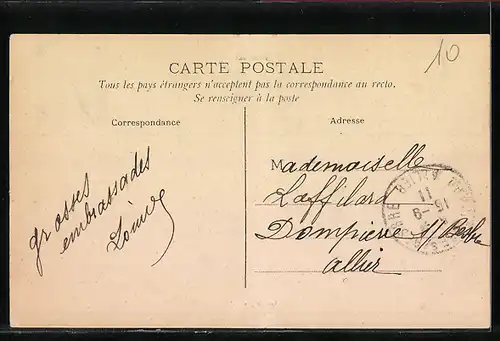 10
CARTE POSTALE
Tous les pays étrangers n'acceptent pas la correspondance au recto.
Se renseigner à la poste
Correspondance
grosses
embrassades
Adresse
Mademoiselle
Laffilard
Dompierre s/ Besbre
Allier